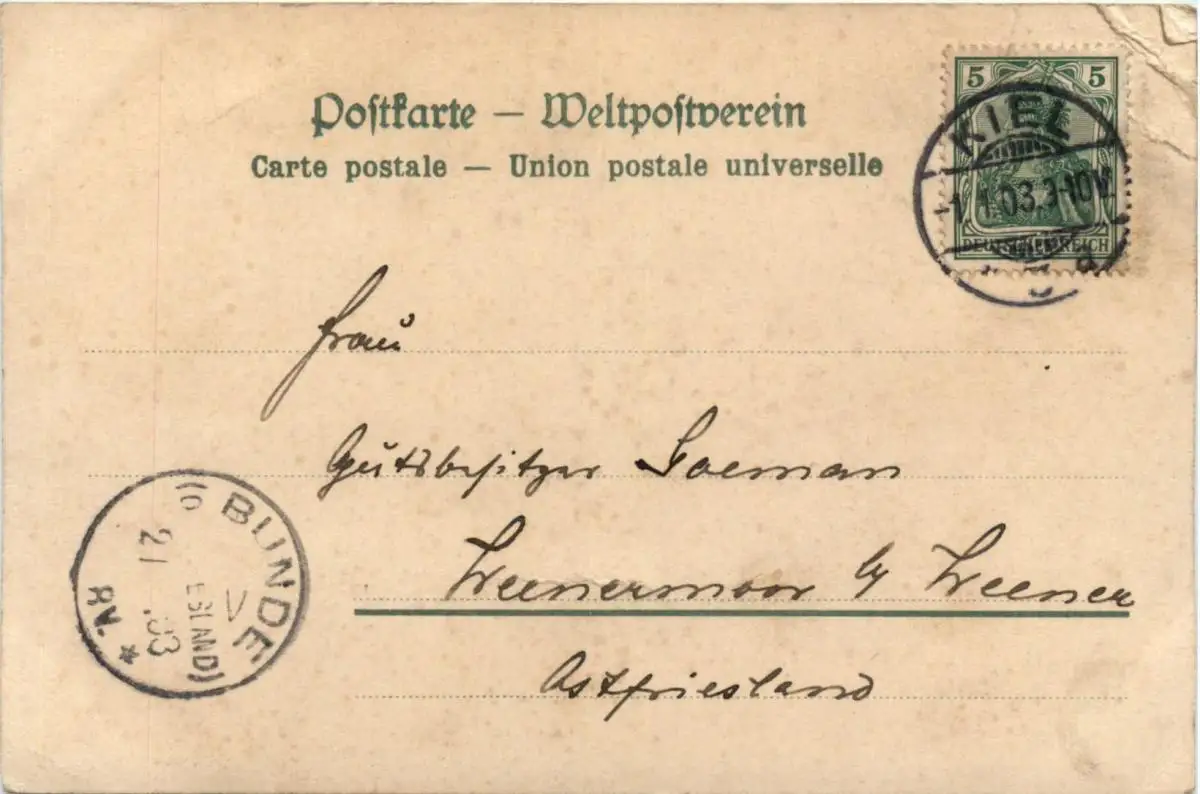 Postkarte — Weltpostverein
Carte postale — Union postale universelle
5 5
DEUTSCHES REICH
KIEL
1.1.03.3-10V.
Frau
Gutsbesitzer Goeman
Weenermoor by Weener
Ostfriesland
BUNDE